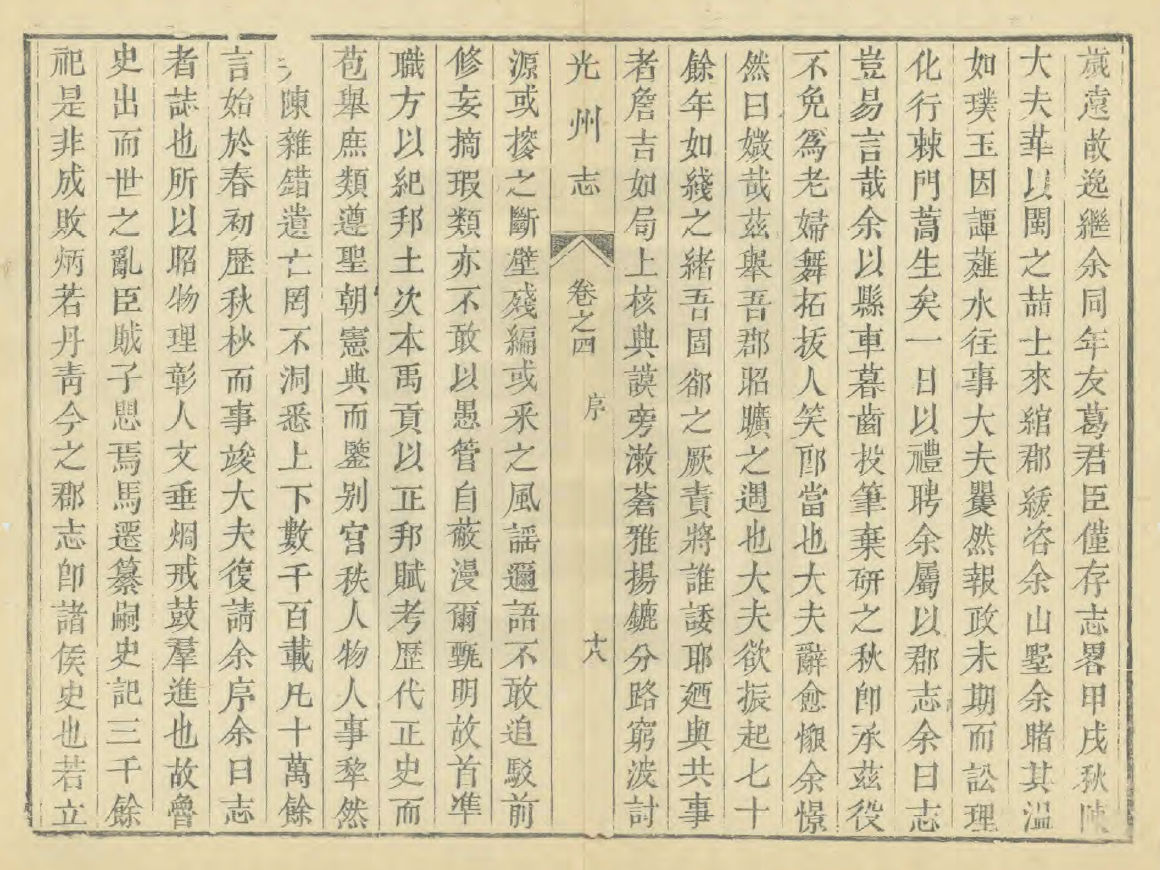 歲遠故逸繼余同年友葛君臣僅存志畧甲戌秋陳
大夫華以閩之喆士來綰郡紱咨余山墅余睹其溫
如璞玉因譚薤水往事大夫矍然報政未期而訟理
化行棘門蒿生矣一日以禮聘余屬以郡志余曰志
豈易言哉余以縣車暮齒投筆棄研之秋卽承茲役
不免爲老婦舞拓拔人笑郎當也大夫辭愈懶余憬
然曰媺哉茲舉吾郡昭曠之遇也大夫欲振起七十
餘年如綫之緒吾固郤之厥責將誰諉耶廼與共事
者詹吉如局上核典謨旁漱蒼雅揚鑣分路窮波討
光州志 卷之四 序 十八
源或搽之斷壁殘編或采之風謡邇語不敢追駁前
修妄摘瑕類亦不敢以愚管自蔽漫爾甄明故首準
職方以紀邦土次本禹貢以正邦賦考歷代正史而
苞舉庶類遵聖朝憲典而鑒别官秩人物人事犂然
陳雜錯遺亡罔不洞悉上下數千百載凡十萬餘
言始於春初歷秋杪而事竣大夫復請余序余曰志
者誌也所以昭物理彰人文垂烱戒鼓羣進也故魯
史出而世之亂臣賊子思焉馬遷纂嗣史記三千餘
祀是非成敗炳若丹靑今之郡志卽諸侯史也若立